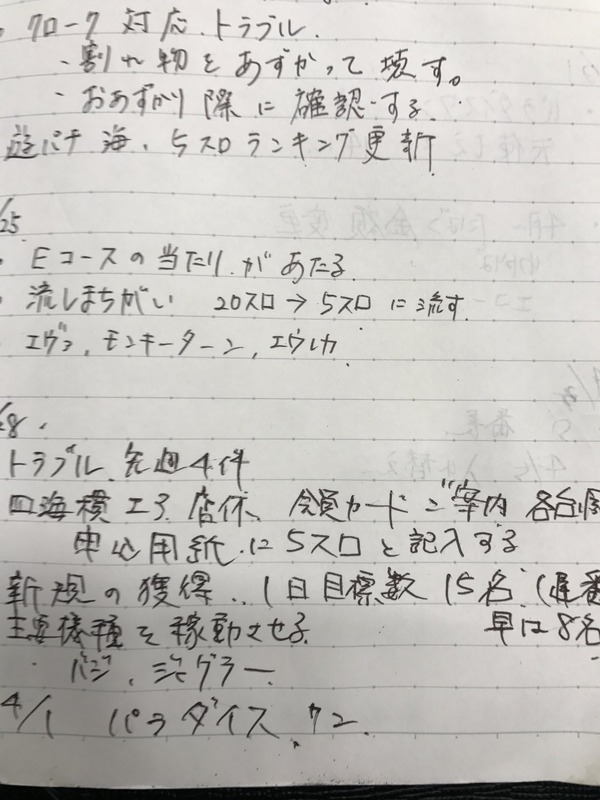 ・クローク対応.トラブル.
・割れ物をあずかって壊す。
・おあずかり際に確認する.
遊パチ 海、5スロランキング更新
/25
・Eコースの当たり.があたる.
・流しまちがい 20スロ→5スロに流す.
・エヴァ、モンキーターン、エウレカ
/8.
トラブル.先週4件
店休、会員カードご案内
申込用紙.に5スロと記入する
新規の獲得..1日目標数15名.(遅番
主要機種を稼動させる 早は8名
バジ、ジャグラー.
4/1 パラダイス.